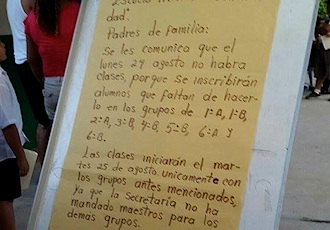 dad".
Padres de familia:
Se les comunica que el
lunes 24 agosto no habra
clases, porque se inscribirán
alumnos que faltan de hacer-
lo en los grupos de 1=A, 1=B,
2=A, 3=B, 4=B, 5=B, 6=A y
6=B.
Las clases iniciarán el mar-
tes 25 de agosto unicamente con
los grupos antes mencionados,
ya que la Secretaría no ha
mandado maestros para los
demás grupos.